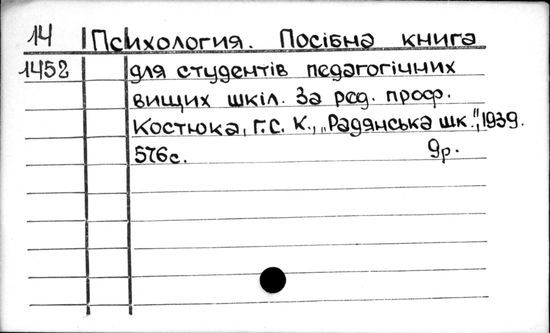 14 Психология. Посібна книга
1452 для студентів педагогічних
вищих шкіл. За ред. проф.
Костюка, Г.С. К., „Радянська шк.", 1939.
576с. 9р.